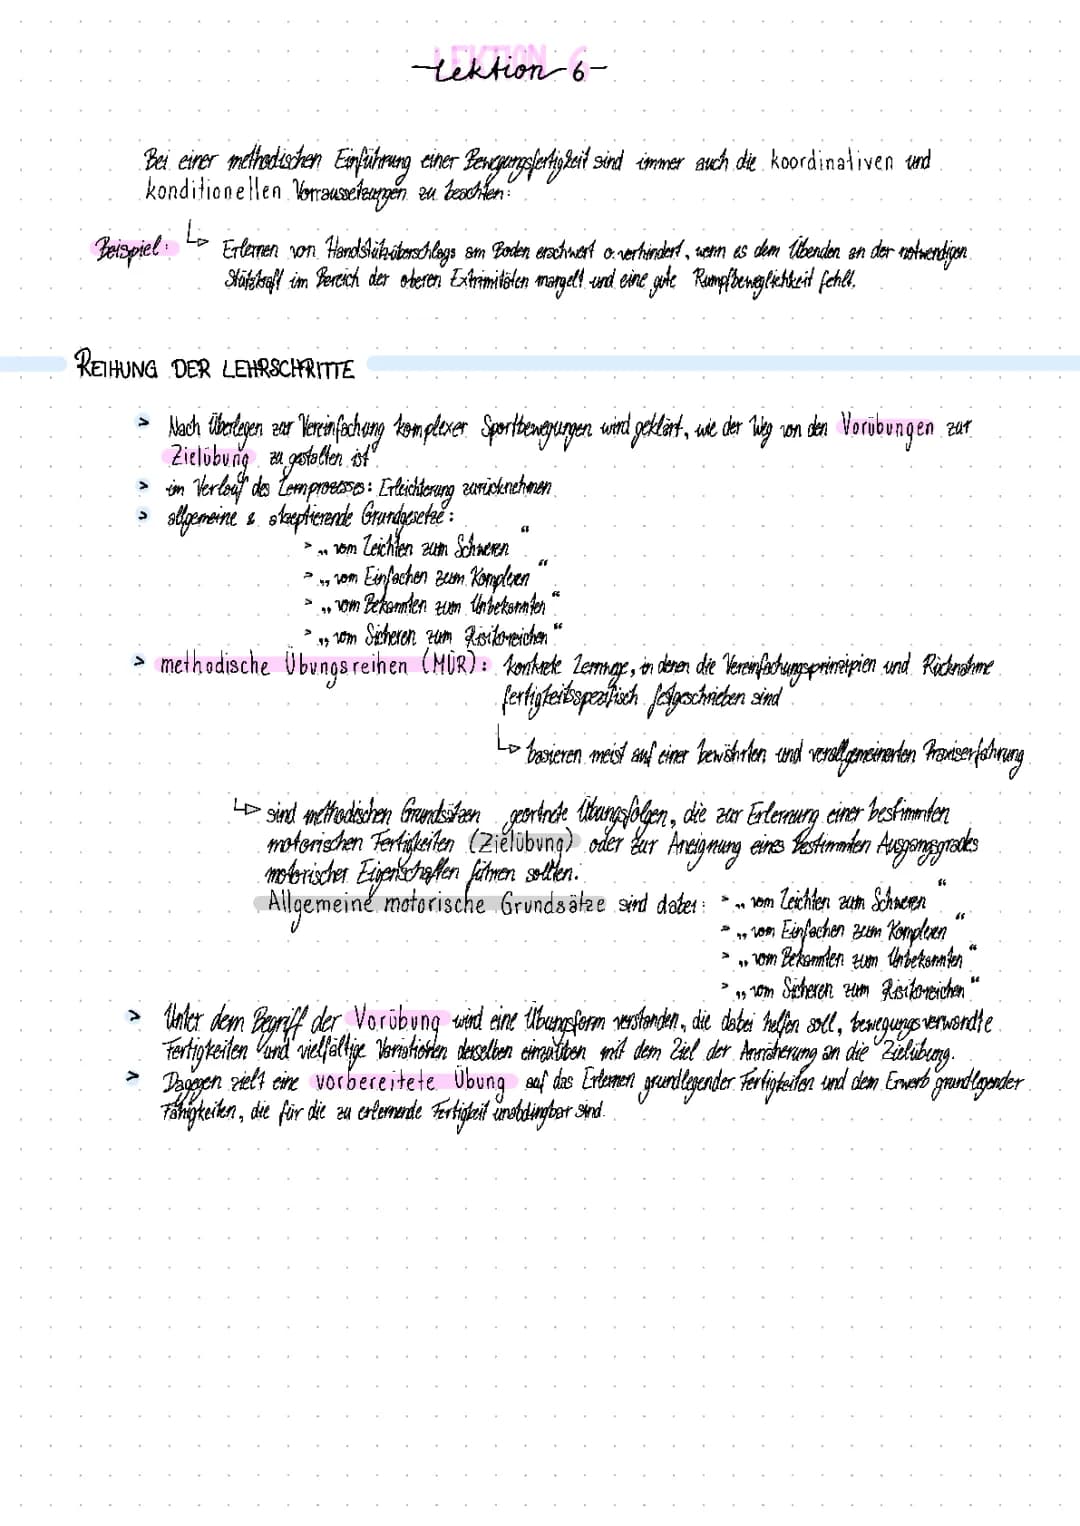 LEKTION 6
-Lektion 6-
Bei einer methodischen Einführung einer Bewegungsfertigkeit sind immer auch die koordinativen und
konditionellen Vorraussetzungen zu beachten:
Beispiel: ↳ Erlernen von Handstützüberschlags am Boden erschwert o. verhindert, wenn es dem Übenden an der notwendigen
Stützkraft im Bereich der oberen Extrimitäten mangelt und eine gute Rumpfbeweglichkeit fehlt.
REIHUNG DER LEHRSCHRITTE
> Nach Überlegen zur Vereinfachung komplexer Sportbewegungen wird geklärt, wie der Weg von den Vorübungen zur
Zielübung zu gestalten ist
> im Verlauf des Lernprozesses: Erleichterung zurücknehmen
> allgemeine & akzeptierende Grundgesetze:
> „vom Leichten zum Schweren“
> „vom Einfachen zum Komplexen“
> „vom Bekannten zum Unbekannten“
> „vom Sicheren zum Risikoreichen“
> methodische Übungsreihen (MÜR): konkrete Lernwege, in denen die Vereinfachungsprinzipien und Rücknahme
fertigkeitsspezifisch festgeschrieben sind
↳ basieren meist auf einer bewährten und verallgemeinerten Praxiserfahrung
↳ sind methodischen Grundsätzen geortnete Übungsfolgen, die zur Erlernung einer bestimmten
motorischen Fertigkeiten (Zielübung) oder zur Aneignung eines bestimmten Ausgangsgrades
motorischer Eigenschaften führen sollten.
Allgemeine motorische Grundsätze sind dabei: > „vom Leichten zum Schweren“
> „vom Einfachen zum Komplexen“
> „vom Bekannten zum Unbekannten“
> „vom Sicheren zum Risikoreichen“
> Unter dem Begriff der Vorübung wird eine Übungsform verstanden, die dabei helfen soll, bewegungsverwandte
Fertigkeiten und vielfältige Variationen derselben einzuüben mit dem Ziel der Annäherung an die Zielübung.
> Dagegen zielt eine vorbereitete Übung auf das Erlernen grundlegender Fertigkeiten und dem Erwerb grundlegender
Fähigkeiten, die für die zu erlernende Fertigkeit unabdingbar sind.